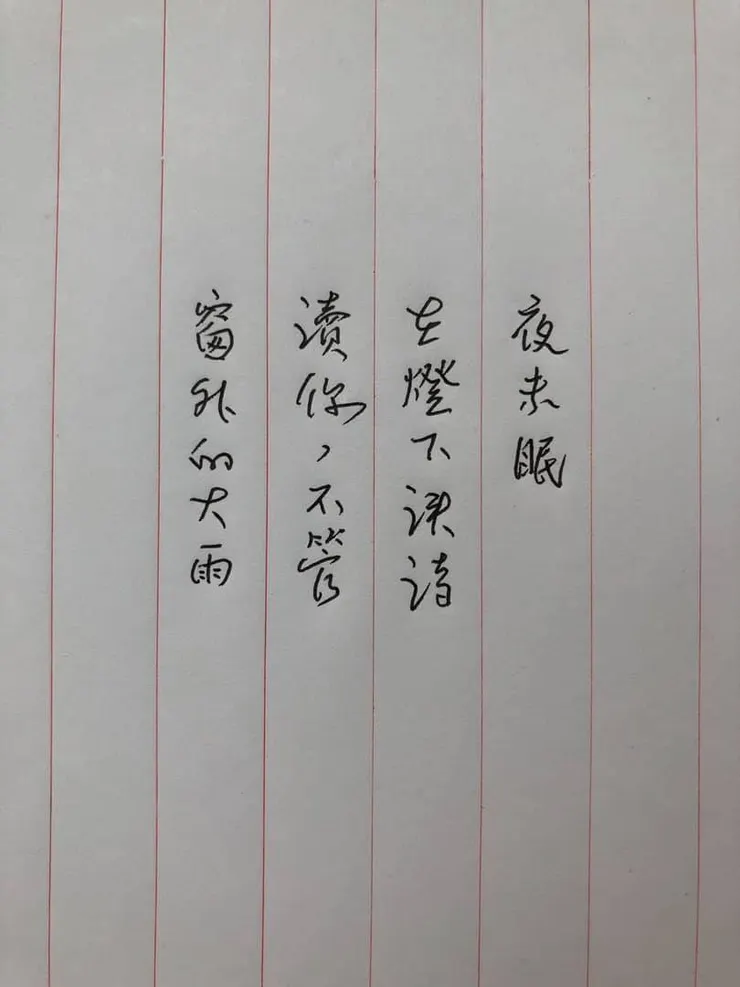 夜未眠
在燈下讀詩
讀你，不管
窗外的大雨